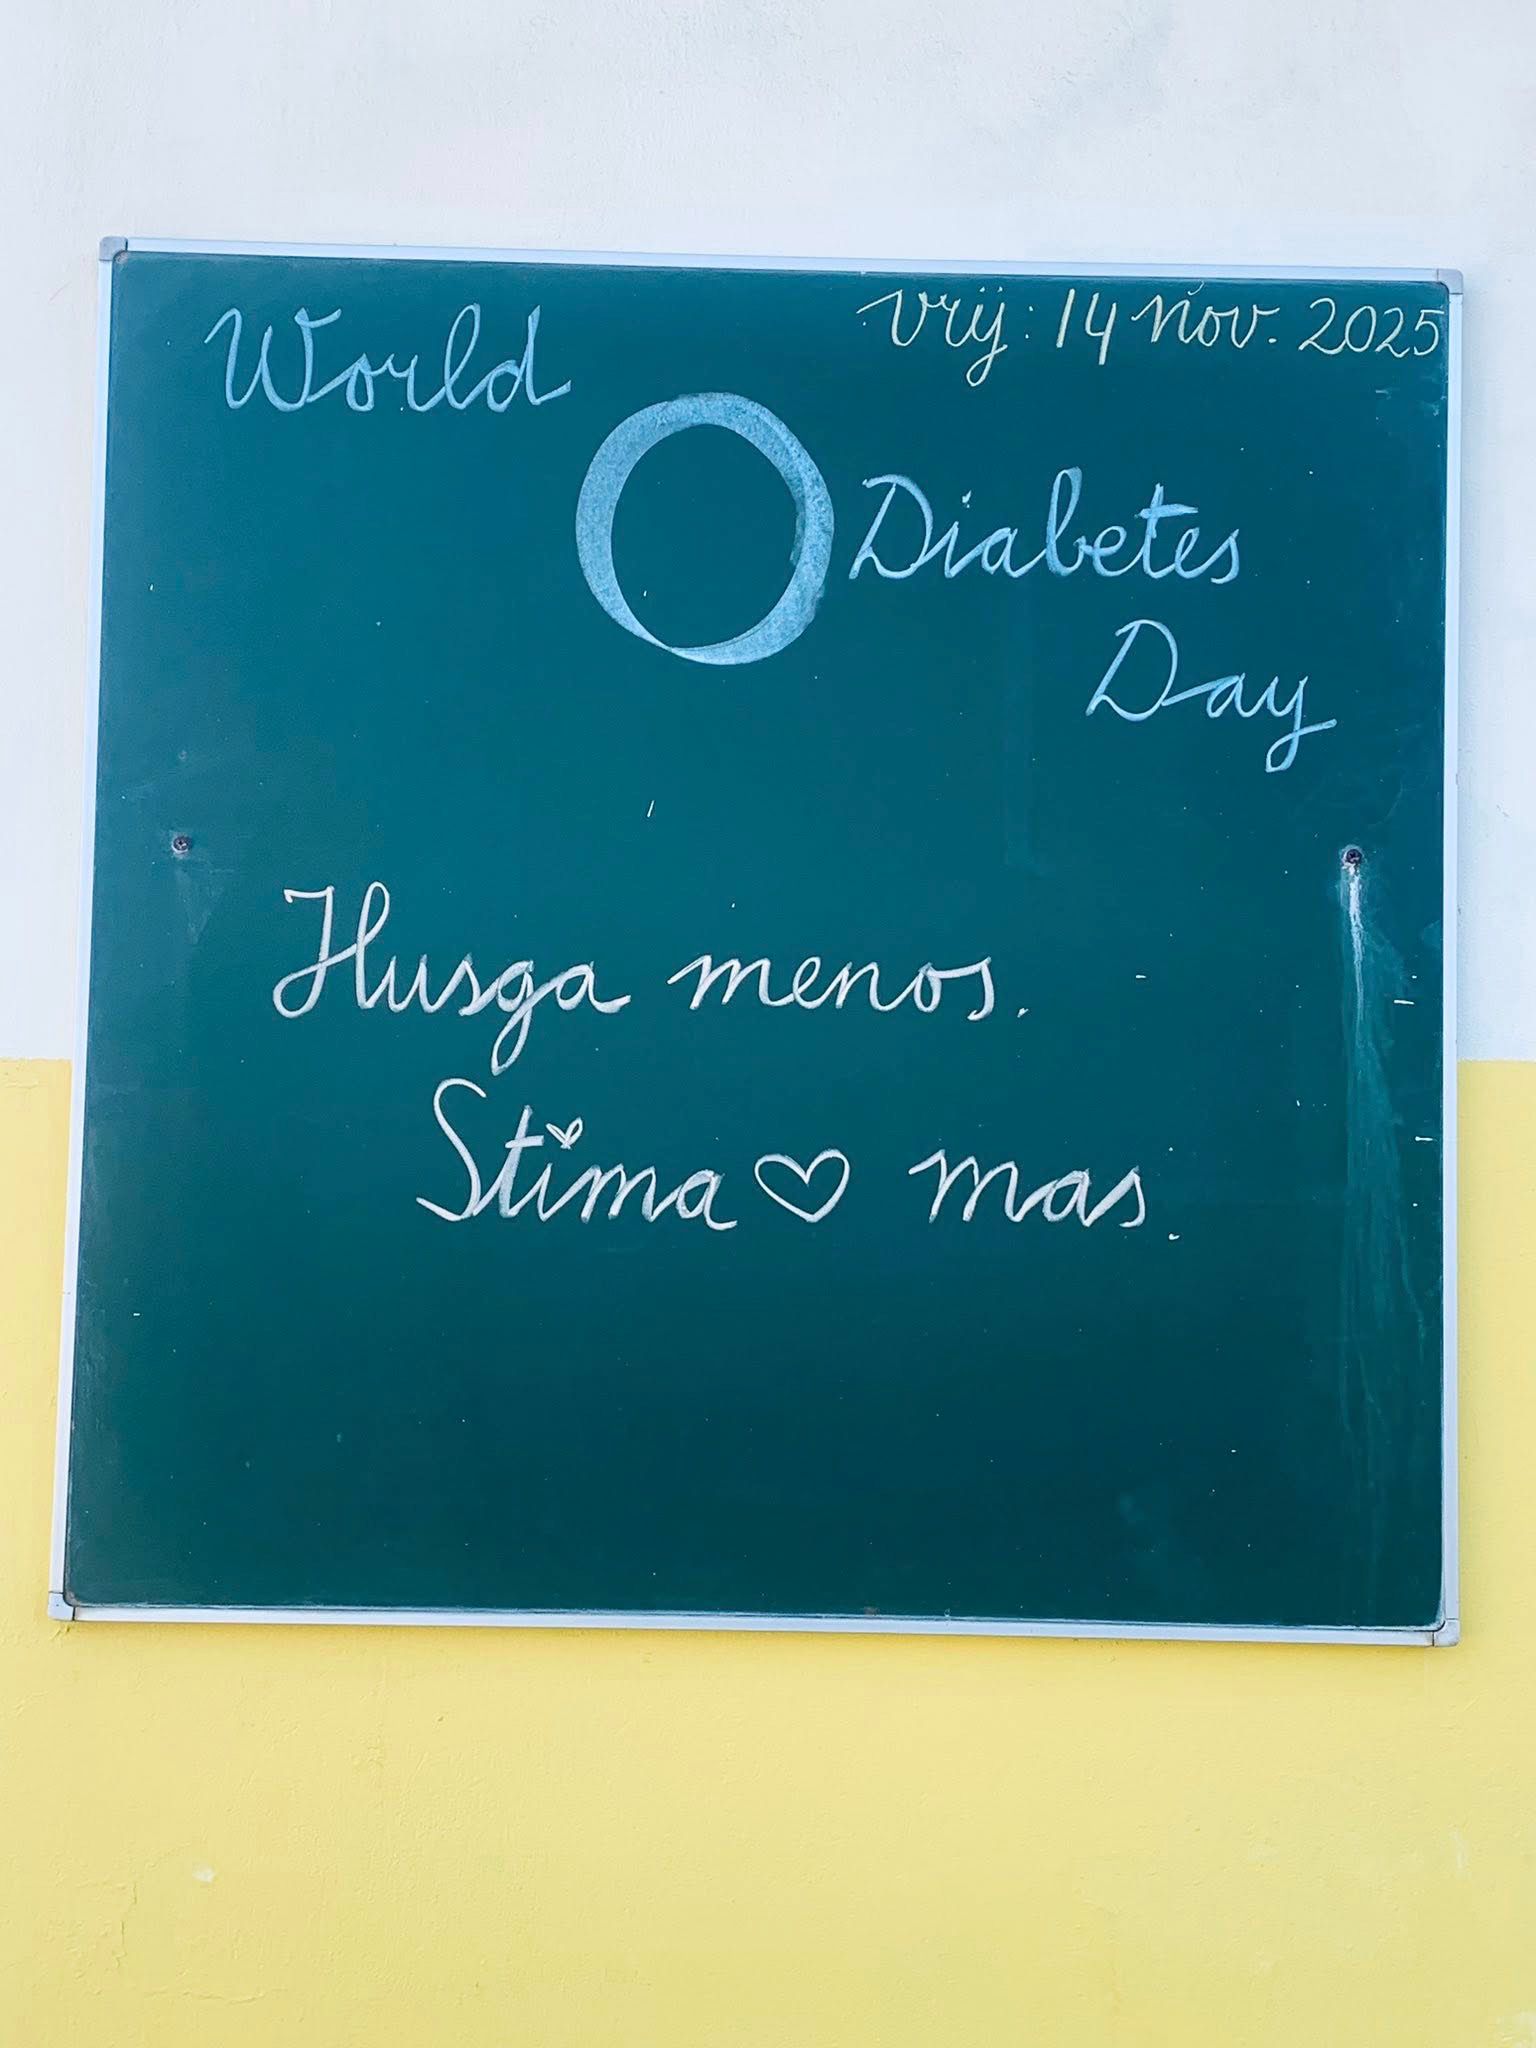 vrij: 14 nov. 2025
World
Diabetes
Day
Husga menos.
Stima ♡ mas.